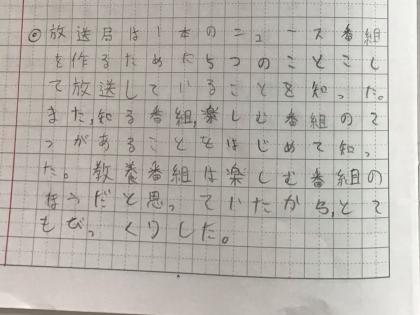 ◎放送局は1本のニュース番組
を作るためたち5つのことこし
て放送していることを知った。
また,知る番組,楽しむ番組の
つがあることをはじめて知っ
た。教養番組は楽しむ番組の
ほうだと思っていたから,とて
もびっくりした。